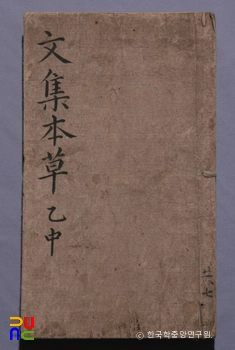 文集本草 乙中
共七
ⓒ 한국학중앙연구원